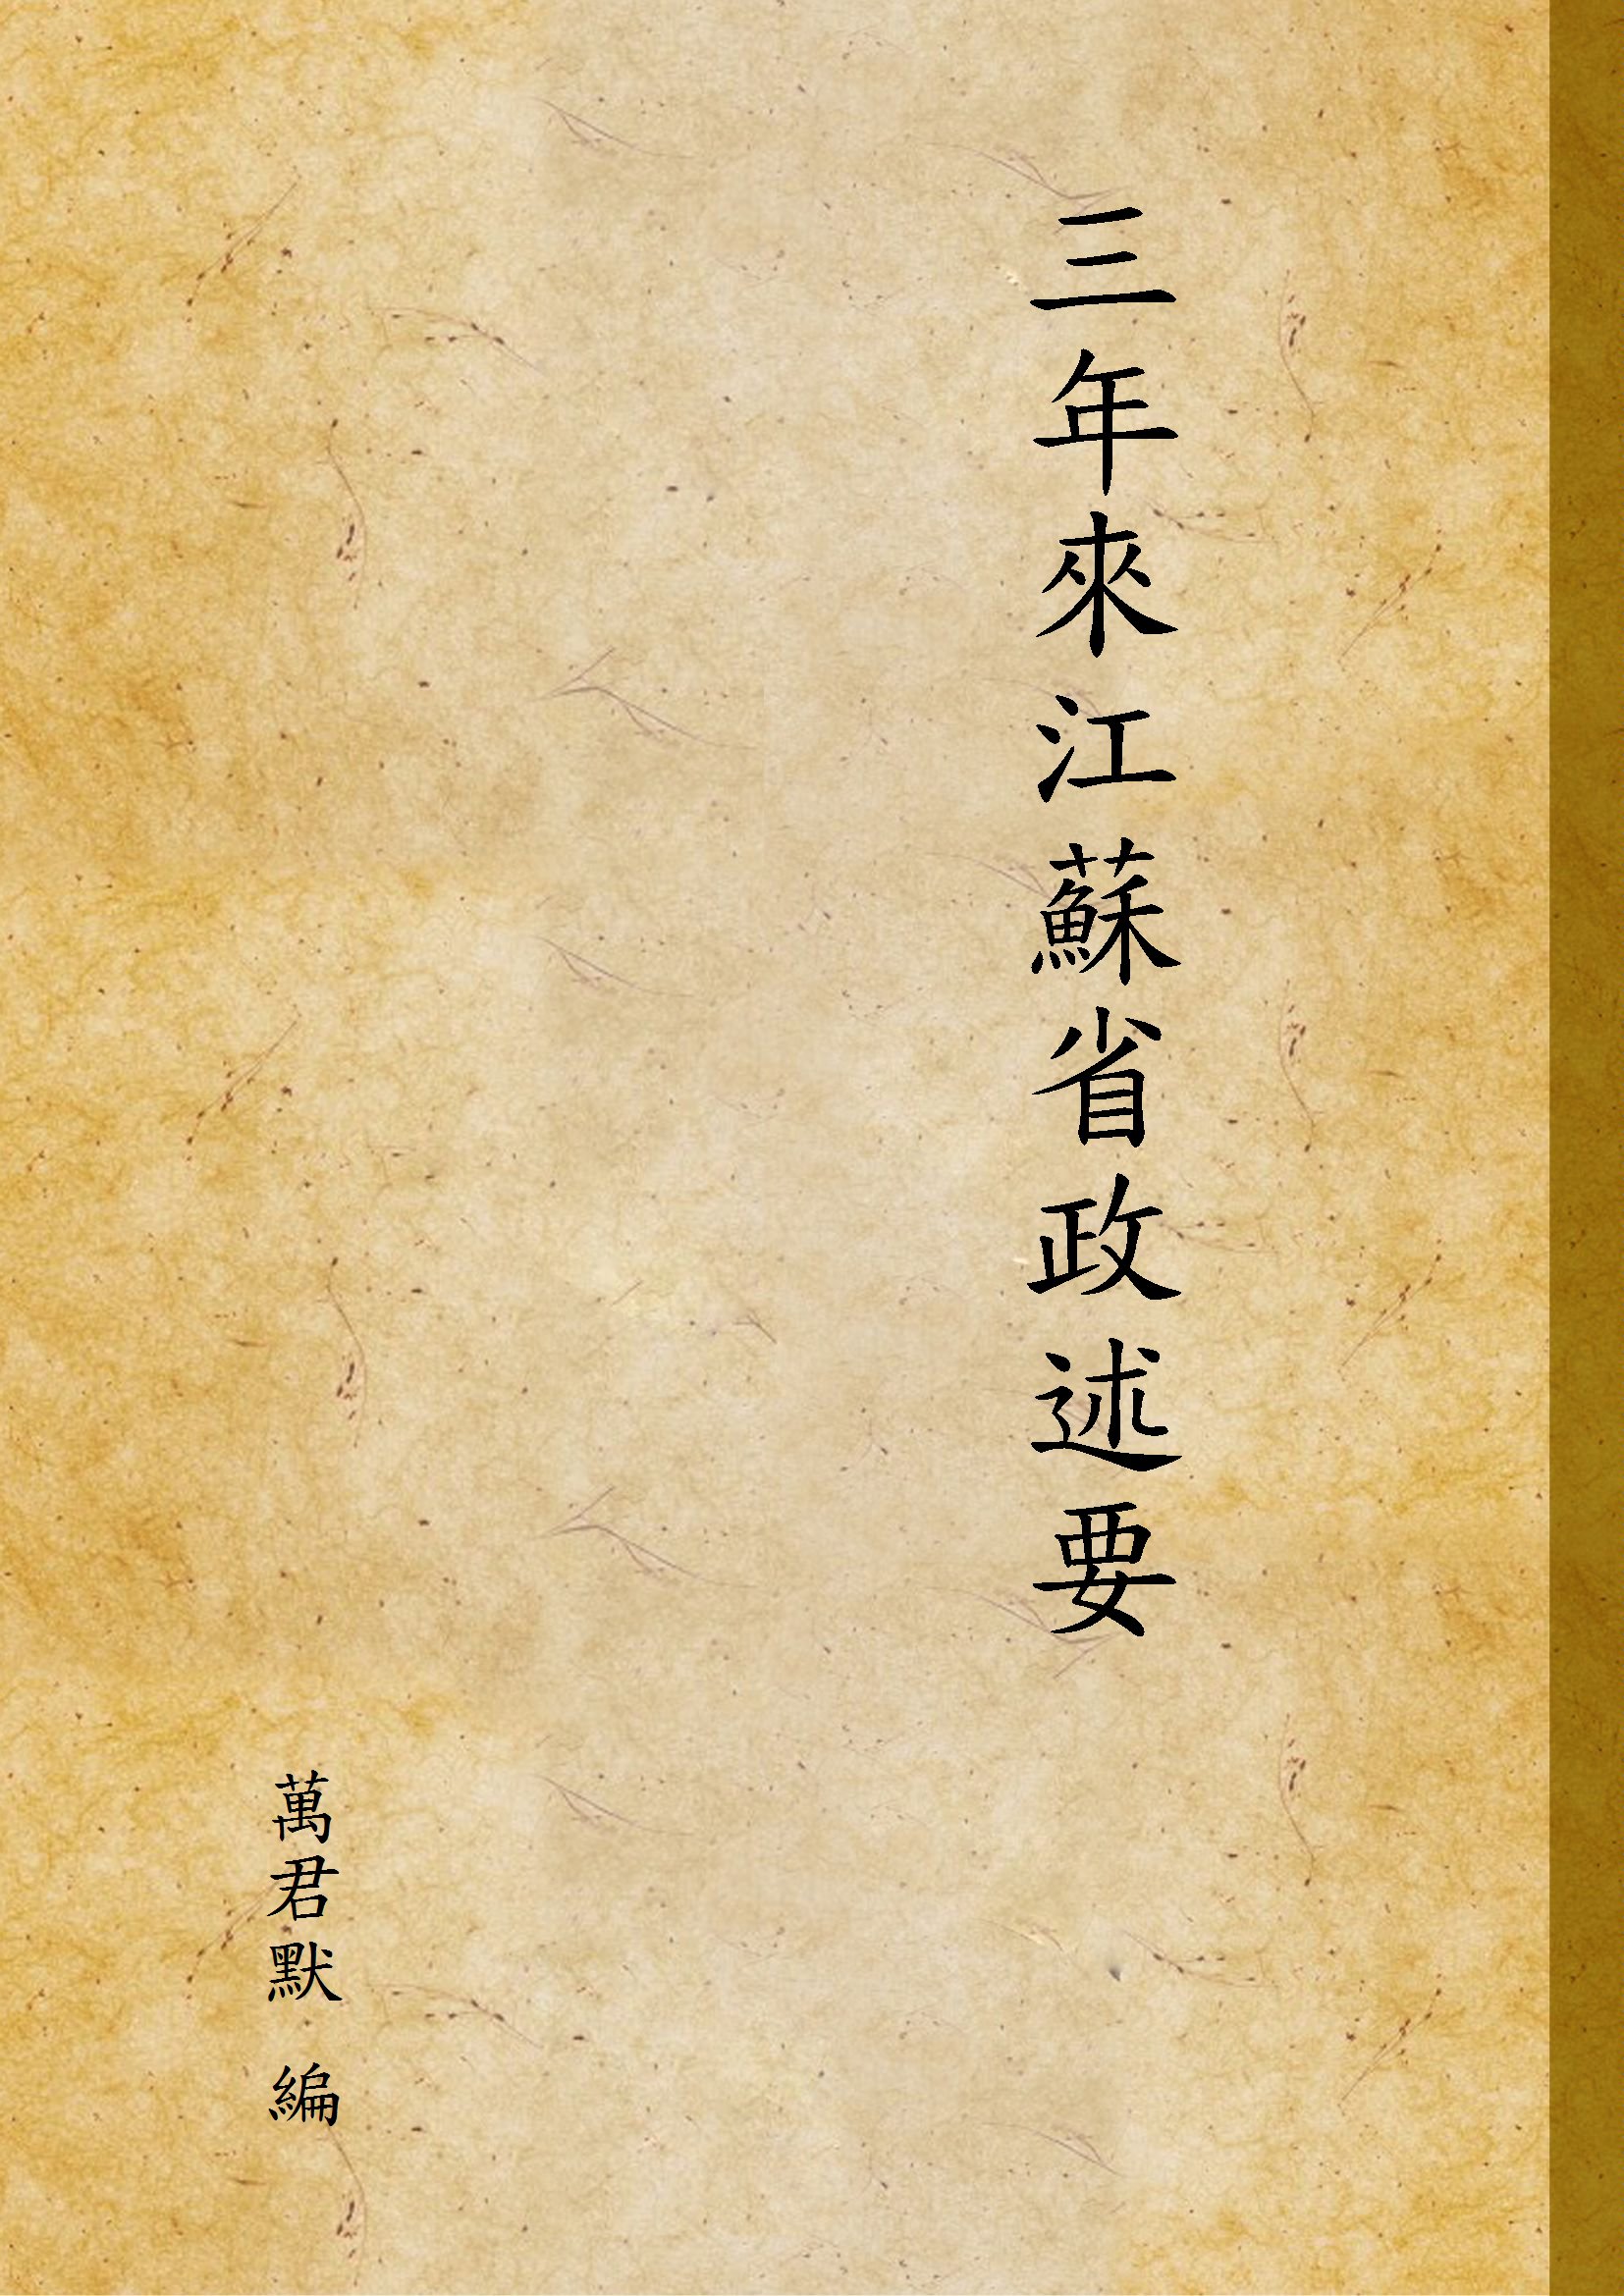 三年來江蘇省政述要
萬君默 編